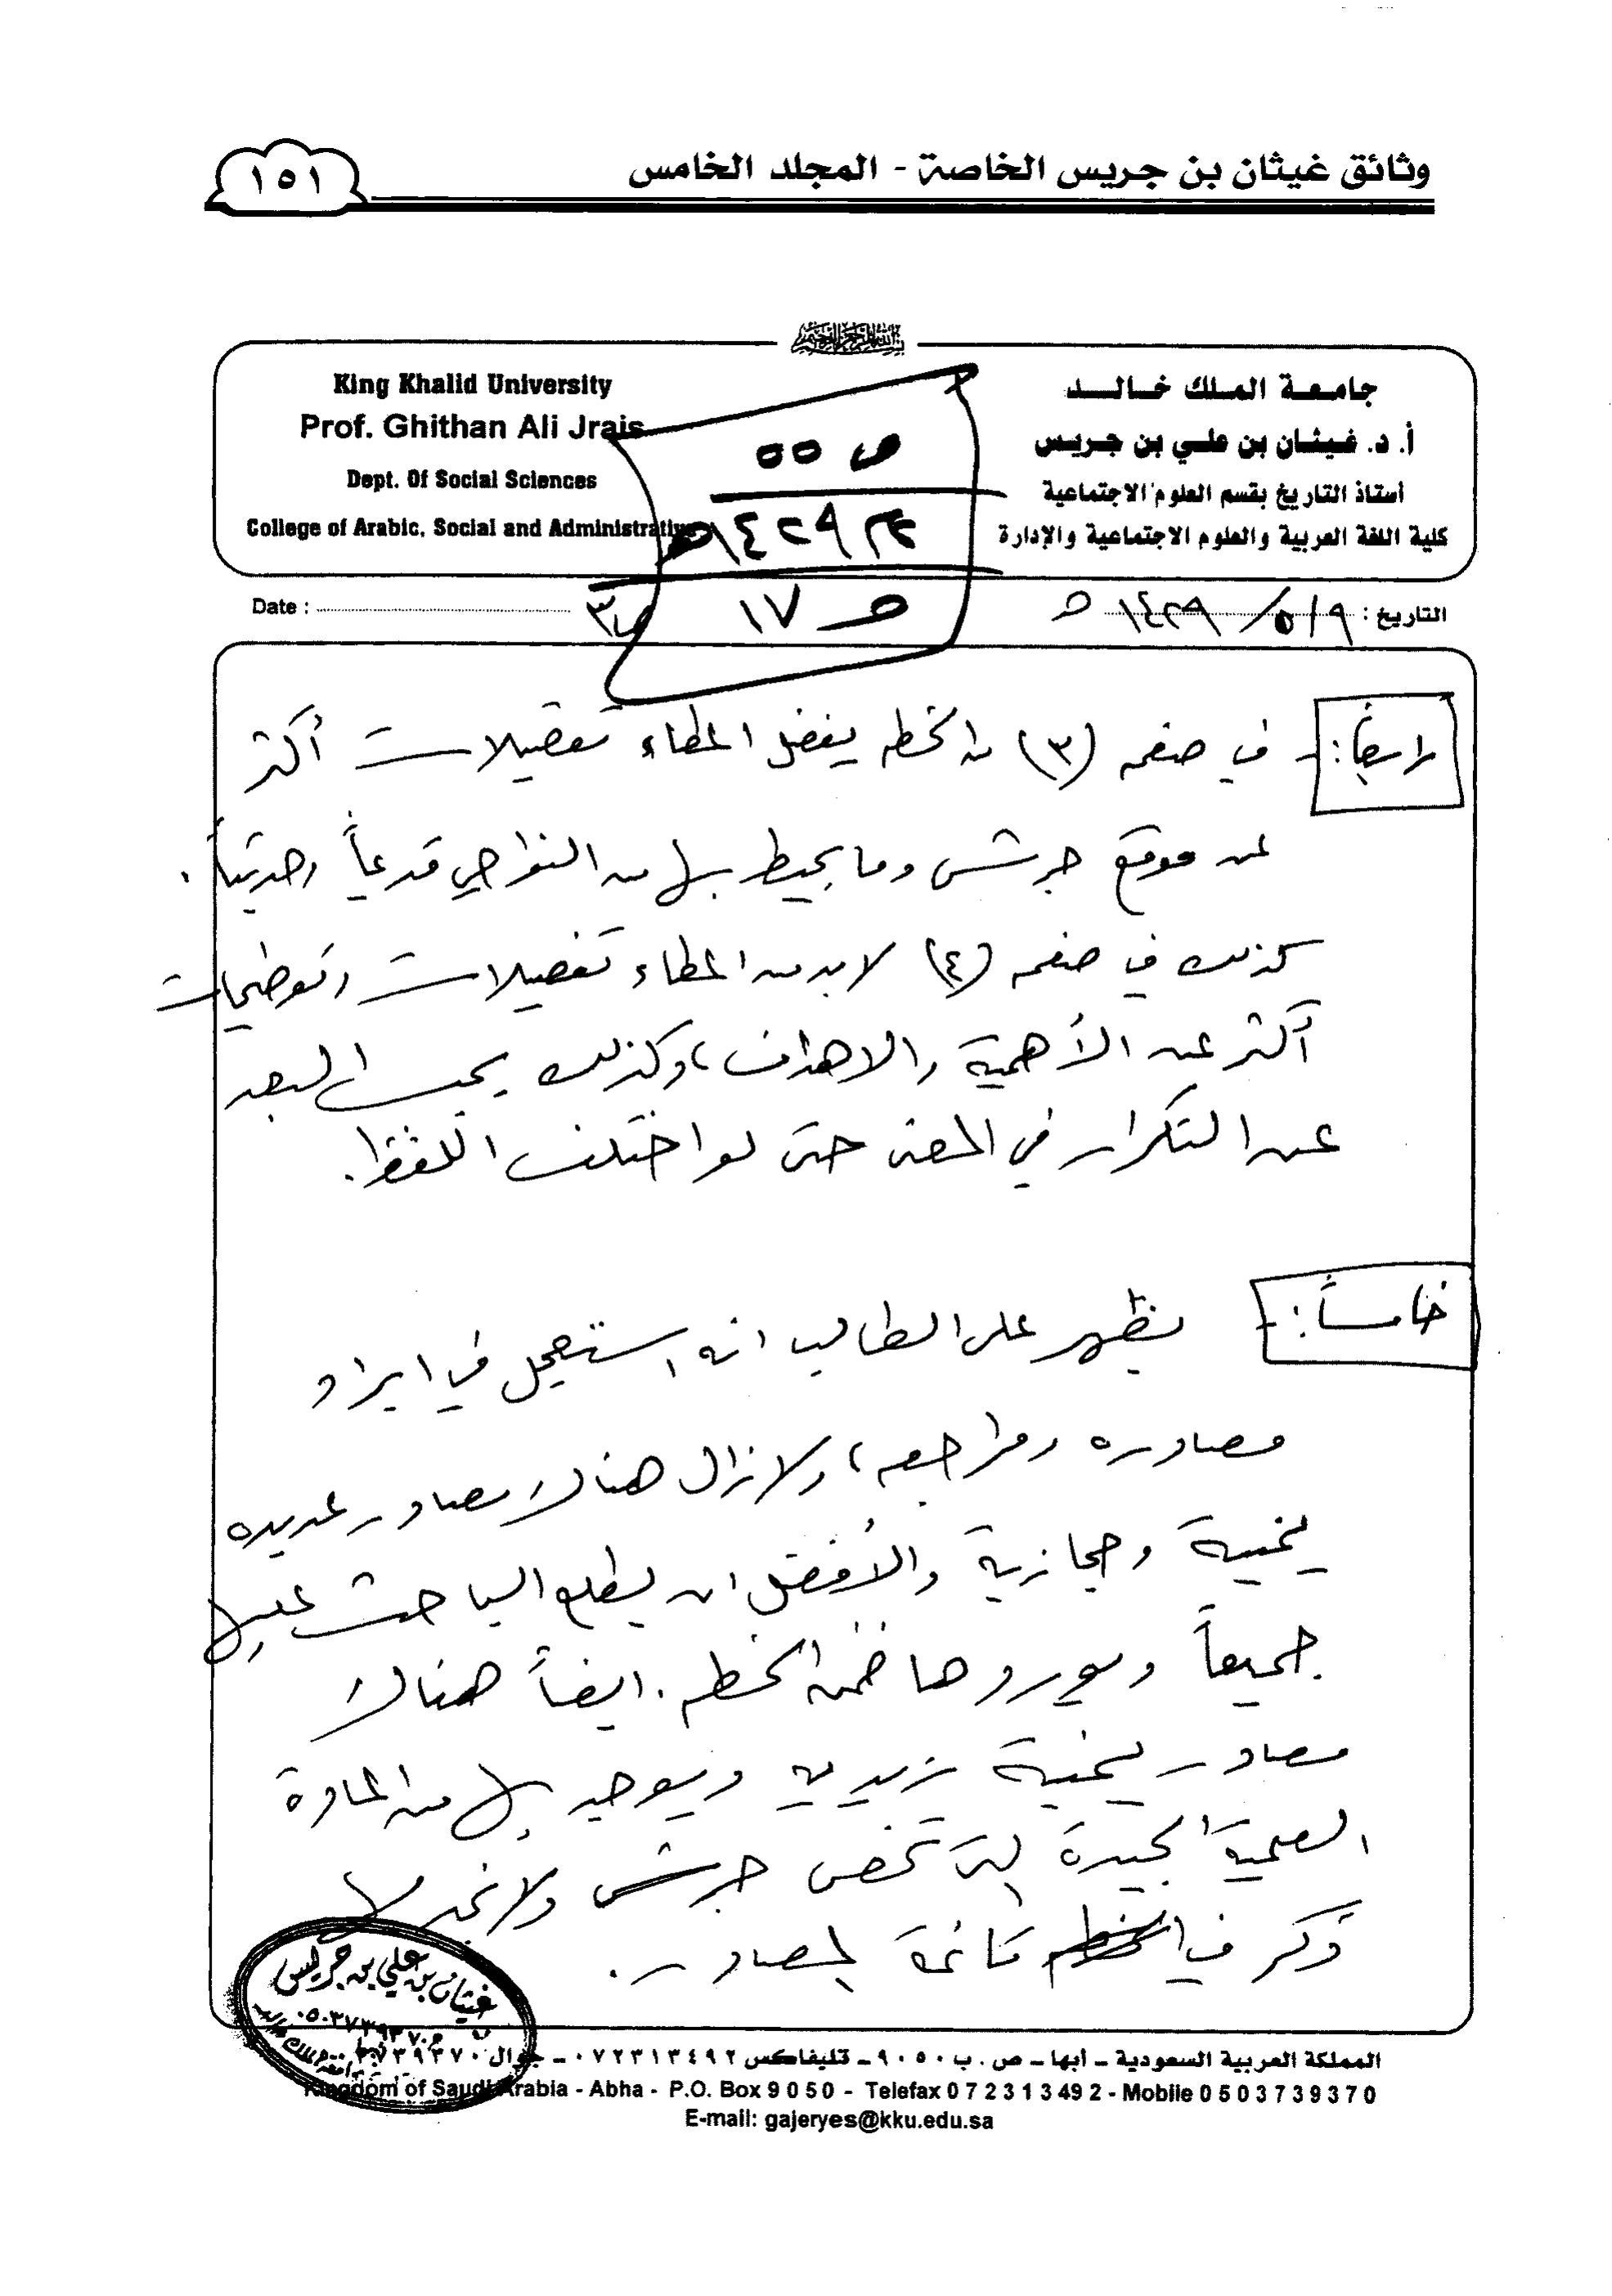 وثائق غيثان بن جريس الخاصة - المجلد الخامس
١٥١
جامعة الملك خالد
أ. د. غيثان بن علي بن جريس
أستاذ التاريخ بقسم العلوم الاجتماعية
كلية اللغة العربية والعلوم الاجتماعية والإدارة
King Khalid University
Prof. Ghithan Ali Jrais
Dept. Of Social Sciences
College of Arabic, Social and Administrative
ص ٥٥
١٤٢٩هـ
١٧
التاريخ : ٩/٥/١٤٢٩هـ
Date :
رابعاً:- في صفحه (٣) من الخطه يفضل اعطاء تفصيلات أكثر
عن موقع جرش وما يحيط بها من النواحي قديماً وحديثاً.
كذلك في صفحه (٤) لا بد من اعطاء تفصيلات وتوضيحات
أكثر عن الأهمية والاهداف، وكذلك يجب البعد
عن التكرار في المعنى حتى لو اختلف اللفظ.
خامساً:- يظهر على الطالب انه استعجل في ايراد
مصادره ومراجعه، ولا زال هناك مصادر عديده
يمنية وحجازية والأفضل ان يطلع الباحث عليها
جميعاً ويوردها ضمن الخطه. ايضاً هناك
مصادر يمنية زيديه ويوجد بها من المادة
العلمية الجيدة التي تخص جرش ولا نجد لها
ذكر في قائمة المصادر.
غيثان بن علي بن جريس
٠٥٠٣٧٣٩٣٧٠
المملكة العربية السعودية - أبها - ص . ب ٩٠٥٠ - تليفاكس ٠٧٢٣١٣٤٩٢ - جوال ٠٥٠٣٧٣٩٣٧٠
Kingdom of Saudi Arabia - Abha - P.O. Box 9 0 5 0 - Telefax 0 7 2 3 1 3 49 2 - Mobile 0 5 0 3 7 3 9 3 7 0
E-mail: gajeryes@kku.edu.sa